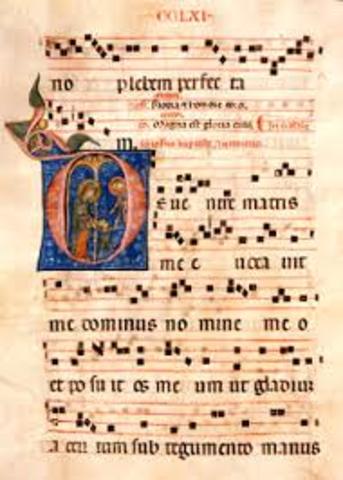 CCLXI
no plebem perfec ta
Magna est gloria eius
E ue ntre matris
me e uoca uit
me dominus no mine me o
et po su it os me um ut gladium
a cu tum sub tegumento manus